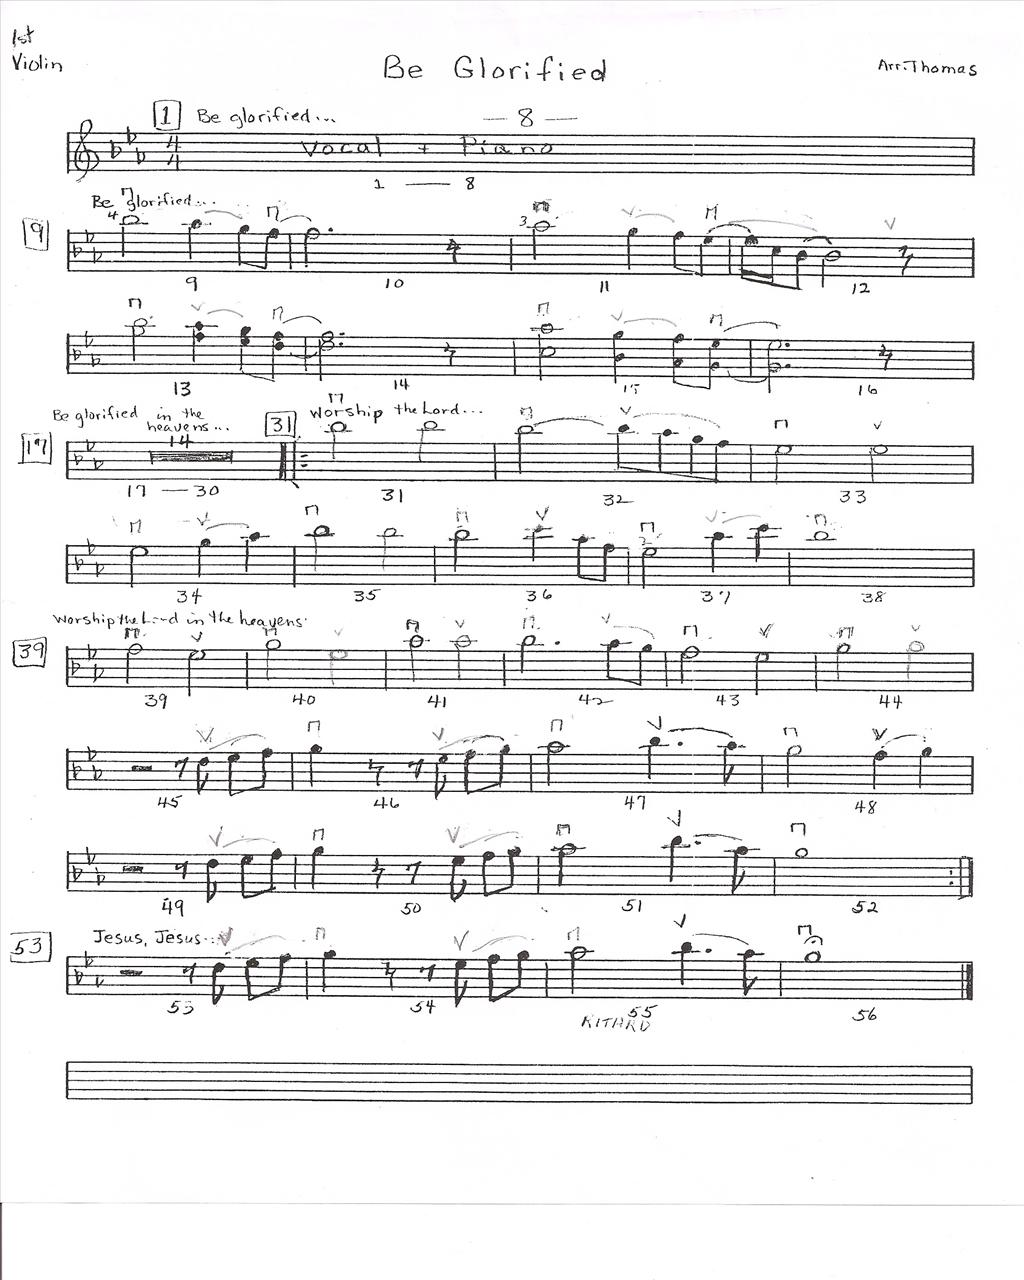 1st
Violin
Be Glorified
Arr. Thomas
1 Be glorified... — 8 —
4
4
Vocal + Piano
1 — 8
Be glorified...
9
4 3
9 10 11 12
13 14 15 16
Be glorified in the
heavens...
31 Worship the Lord...
17
14
17 — 30 31 32 33
2
34 35 36 37 38
Worship the Lord in the heavens
39
39 40 41 42 43 44
45 46 47 48
49 50 51 52
53
Jesus, Jesus...
53 54 55 56
RITARD